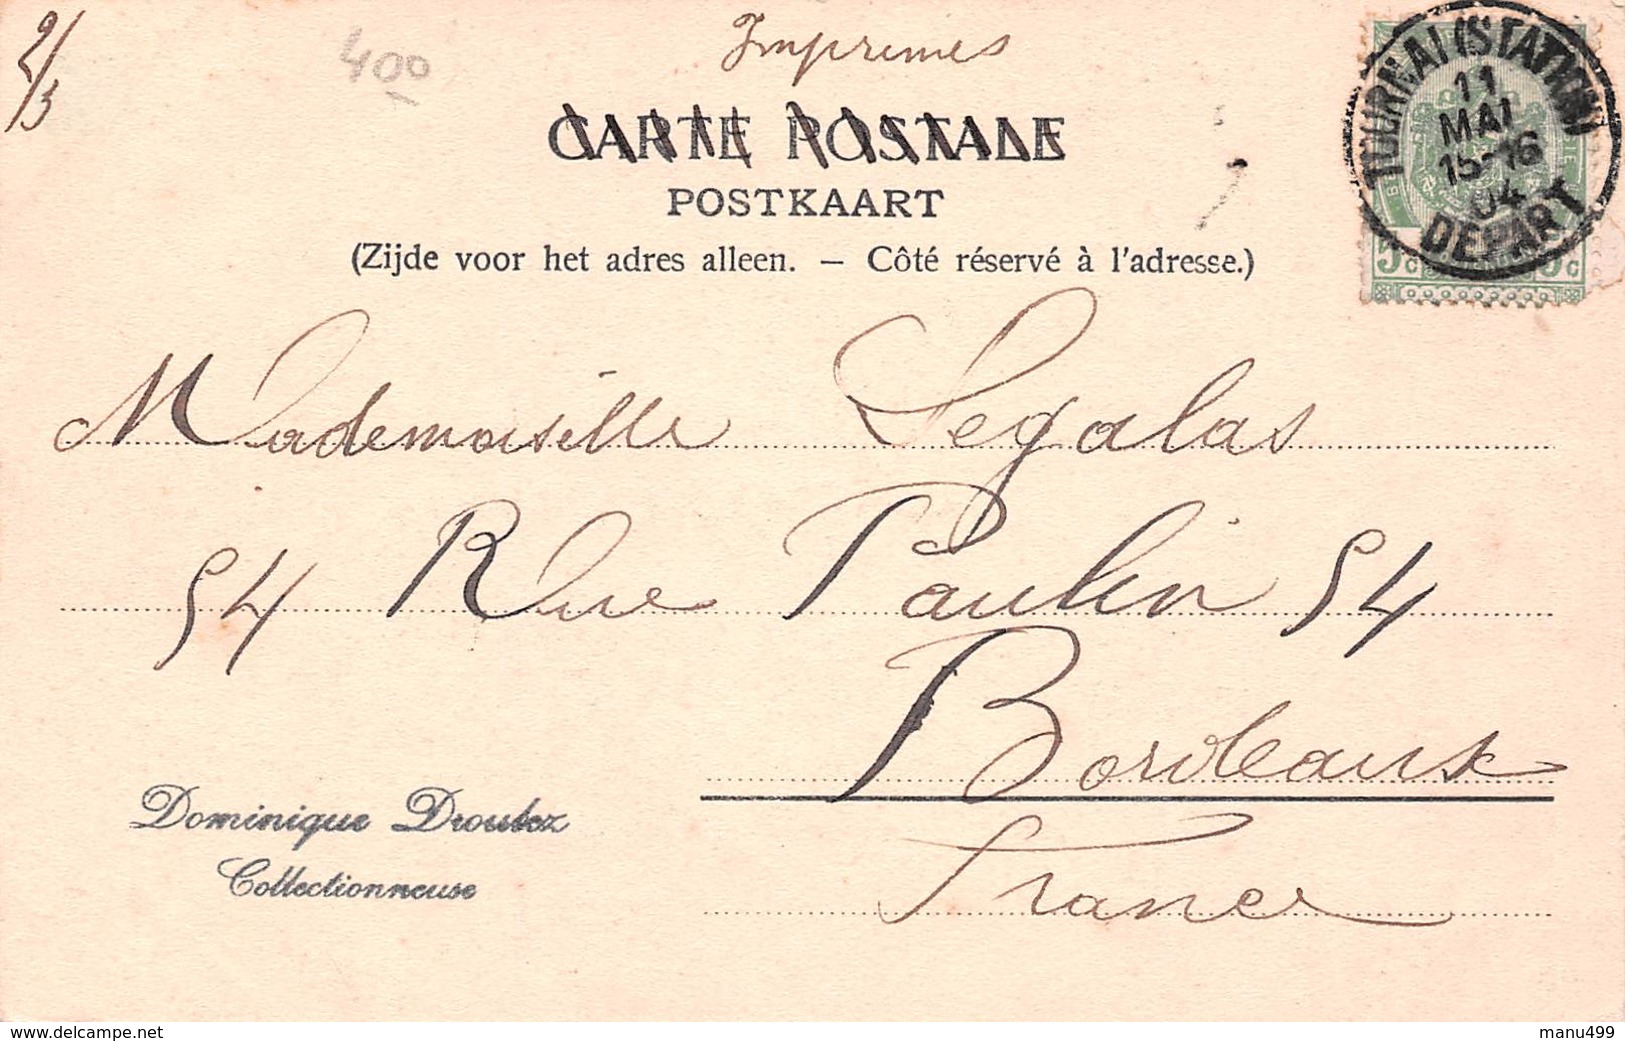 2/3
400
Imprimes
CARTE POSTALE
POSTKAART
(Zijde voor het adres alleen. – Côté réservé à l'adresse.)
TOURNAI (STATION)
11
MAI
15-16
04
DEPART
5c 5c
Mademoiselle Segalas
54 Rue Paulin 54
Bordeaux
France
Dominique Droulez
Collectionneuse
www.delcampe.net
manu499